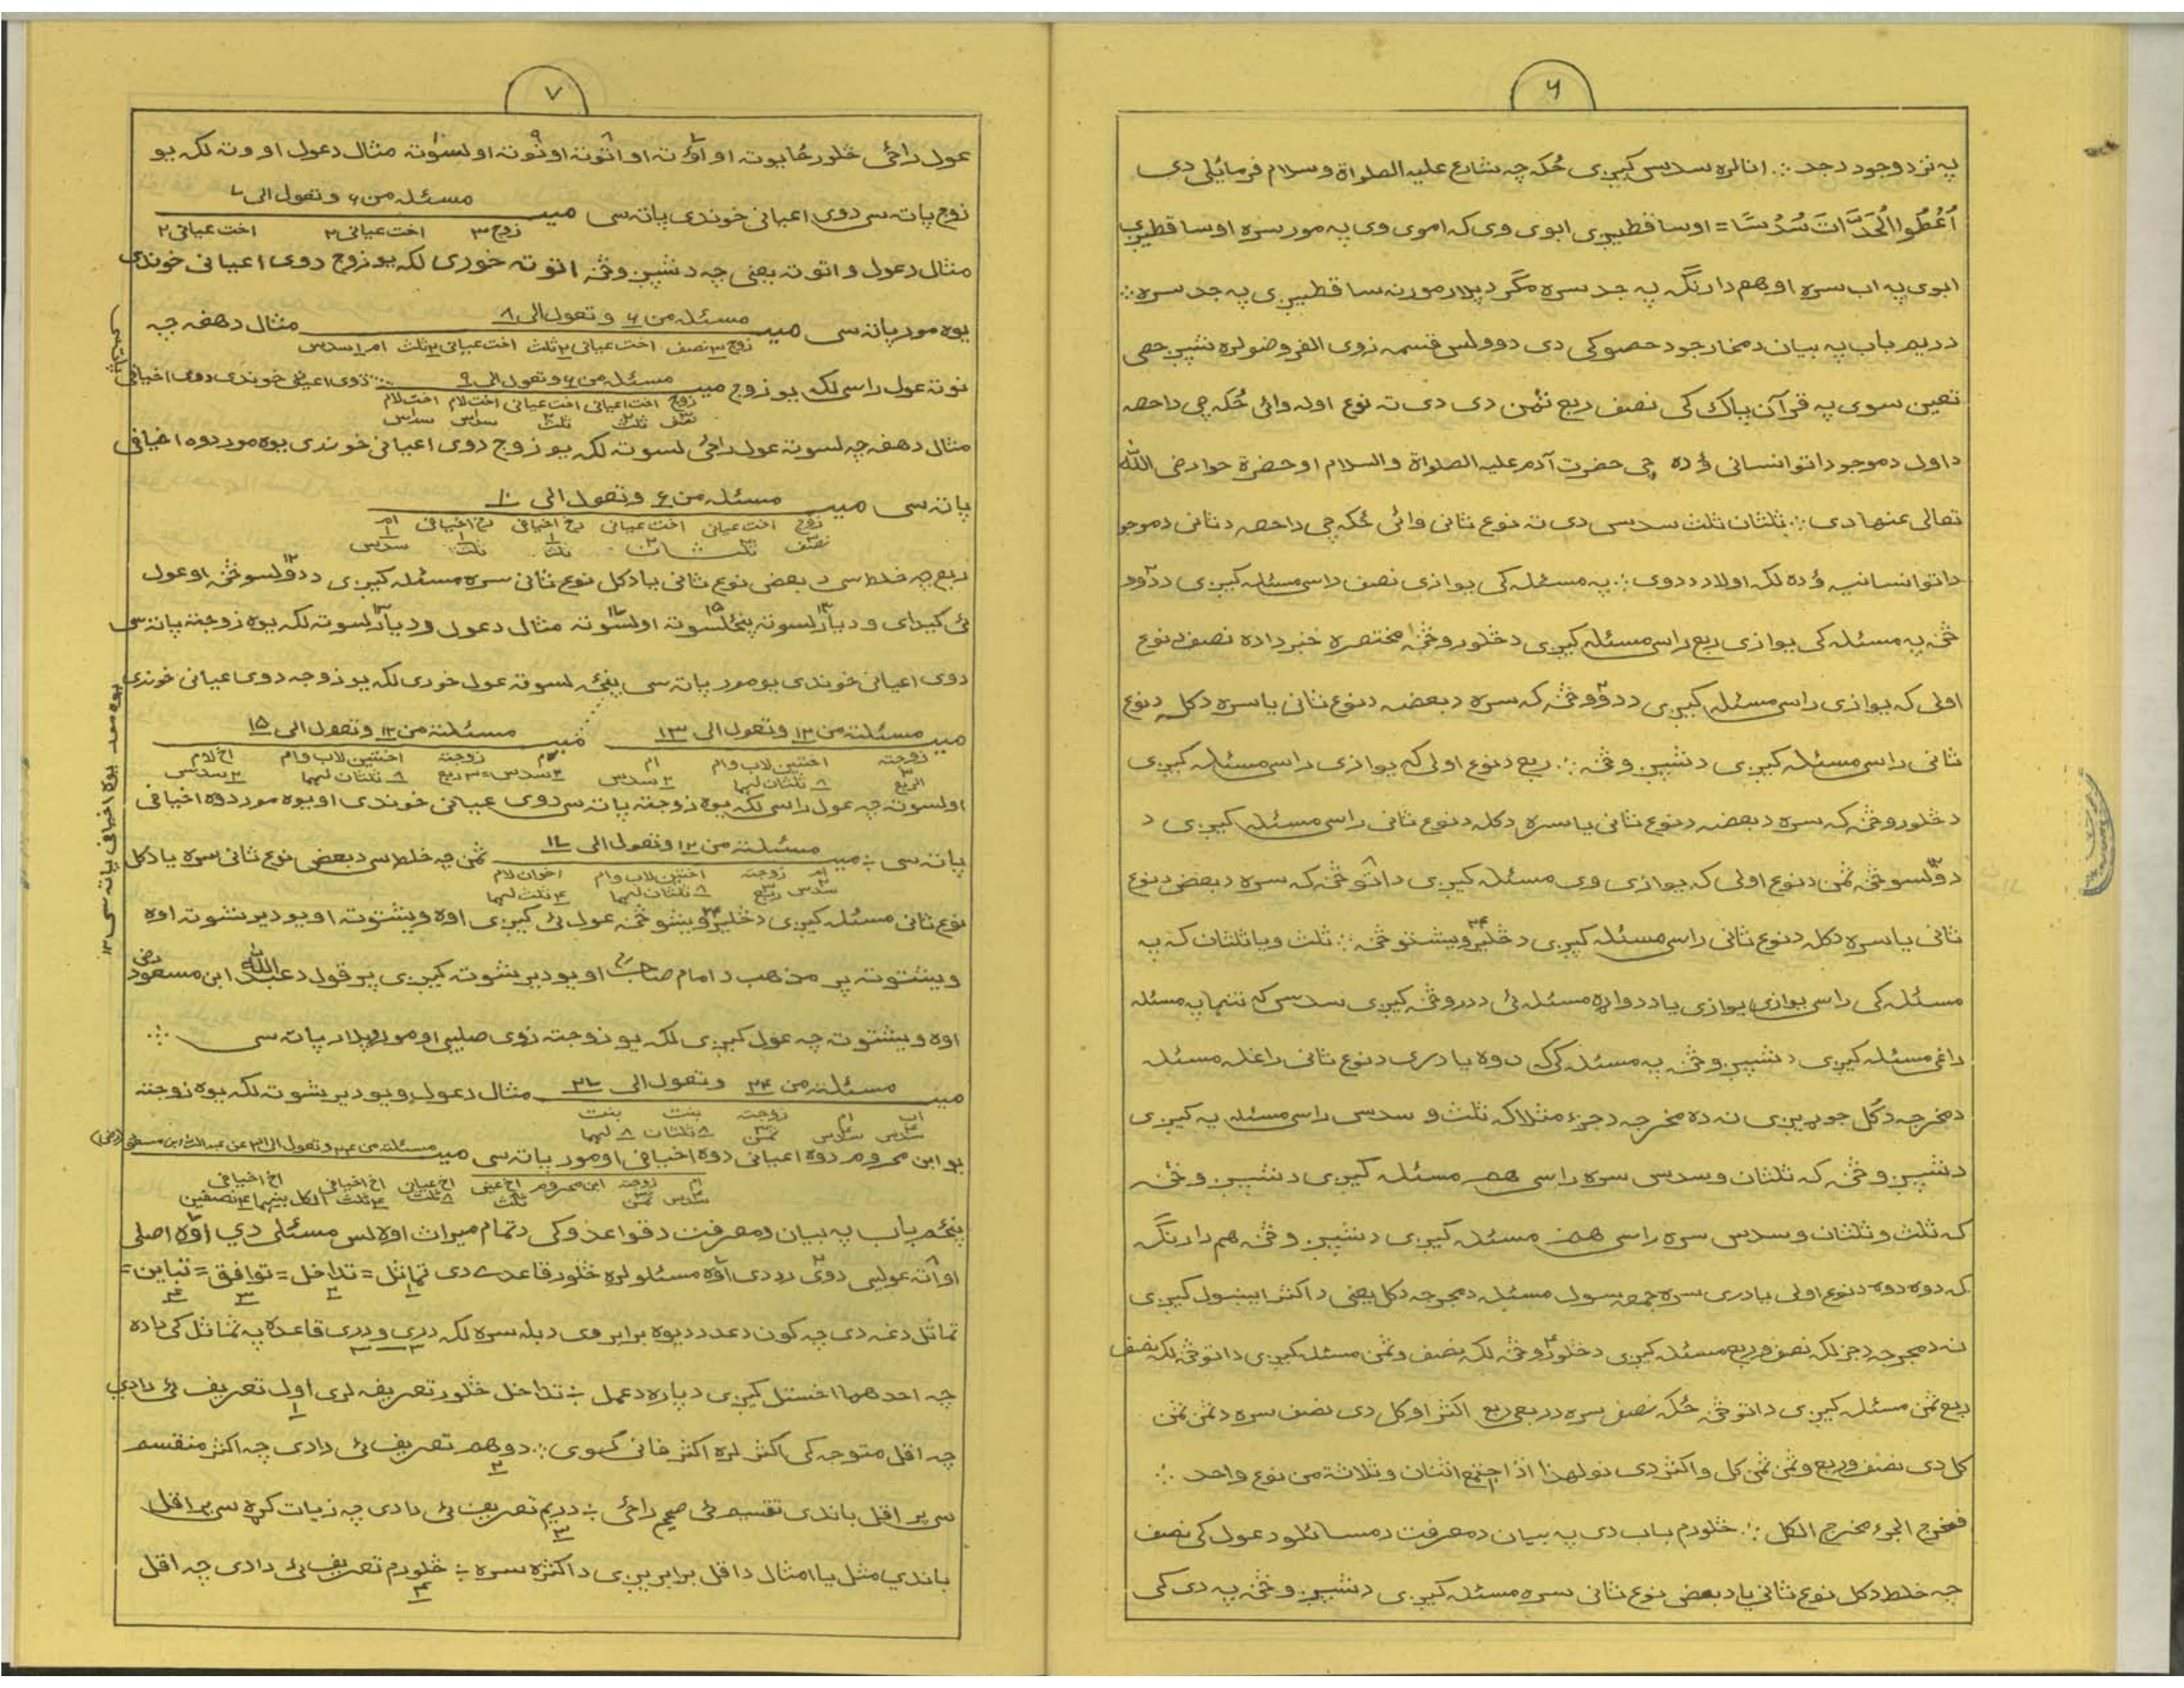 ۶
په نزد وجود د جد ؞ انا لره سدس کیږی ځکه چه شارع علیه الصلواة وسلام فرمائلی دی
اَعْطُوا الْجَدَّاتَ سُدُسًا = او ساقطیږی ابوی وی که اموی وی په مور سره او ساقطیږی
ابوی په اب سره او هم دارنګه په جد سره مګر د پلار مور نه ساقطیږی په جد سره ؞
دریم باب په بیان د مخارجو د حصو کی دی دوولس قسمه ذوی الفروضو لره شپږ حصی
تعین سوی په قرآن پاک کی نصف ربع ثمن دی دی ته نوع اوله وائی ځکه چی داحصه
د اول د موجوداتو انسانی ؤ ده چی حضرت آدم علیه الصلواة والسلام او حضرة حوا رضی الله
تعالی عنها دی ؞ ثلثان ثلث سدس دی ته نوع ثانی وائی ځکه چی داحصه د ثانی د موجو
داتو انسانیه ؤ ده لکه اولاد د دوی ؞ په مسئله کی یوازی نصف راسی مسئله کیږی د دوو ۲
څخه په مسئله کی یوازی ربع راسی مسئله کیږی د څلورو څخه مختصره خبر داده نصف د نوع
اولی که یوازی راسی مسئله کیږی د دوو ۲ څخه که سره د بعضه د نوع ثانی یا سره د کله د نوع
ثانی راسی مسئله کیږی د شپږو څخه ؞ ربع د نوع اولی که یوازی راسی مسئله کیږی
د څلورو څخه که سره د بعضه د نوع ثانی یا سره د کله د نوع ثانی راسی مسئله کیږی د
دولسو څخه ثمن د نوع اولی که یوازی وی مسئله کیږی د اتو ۸ څخه که سره د بعض د نوع
ثانی یا سره د کله د نوع ثانی راسی مسئله کیږی د څلیرویشتو ۲۴ څخه ؞ ثلث و یا ثلثان که په
مسئله کی راسی یوازی یوازی یا د دواړه مسئله ئی د درو څخه کیږی سدس که تنها په مسئله
راغی مسئله کیږی د شپږو څخه په مسئله کی که دوه یا دری د نوع ثانی راغله مسئله
د مخرجه د کل جوړیږی نه ده مخرجه د جزء مثلا که ثلث و سدس راسی مسئله په کیږی
د شپږو څخه که ثلثان و سدس سره راسی هم مسئله کیږی د شپږو څخه
که ثلث و ثلثان و سدس سره راسی هم مسئله کیږی د شپږو څخه هم دارنګه
که دوه دوه د نوع اولی یا دری سره جمعه سول مسئله د مخرجه د کل یعنی د اکثر ایښول کیږی
نه د مخرجه د جز لکه نصف و ربع مسئله کیږی د څلورو ۴ څخه لکه نصف و ثمن مسئله کیږی د اتو څخه لکه نصف
ربع ثمن مسئله کیږی د اتو څخه ځکه نصف سره د ربعی ربع اکثر او کل دی نصف سره د ثمن ثمن
کل دی نصف و ربع و ثمن ثمن کل و اکثر دی نو لهذا اذا اجتمع اثنان و ثلاثة من نوع واحد ؞
فمخرج الجزء مخرج الکل ؞ څلورم باب دی په بیان د معرفت د مسائلو د عول کی نصف
چه خلط د کل نوع ثانی یا د بعض نوع ثانی سره مسئله کیږی د شپږو څخه په دی کی
۷
عول راځی څلور ځایو ته او اوو ۷ ته او اتو ۸ ته او نو ۹ ته او لسو ۱۰ ته مثال د عول او وته لکه یو
زوج پاته سی دوی اعیانی خوندی پاته سی میـ مسئله من ۶ و تعول الی ۷
زوج ۳ اخت عیانی ۲ اخت عیانی ۲
مثال د عول و اتو ته یعنی چه د شپږو څخه اتو ته خوری لکه یو زوج دوی اعیانی خوندی
یوه مور پاته سی میـ مسئله من ۶ و تعول الی ۸ مثال د هغه چه
زوج ۳ نصف اخت عیانی ۲ ثلث اخت عیانی ۲ ثلث ام ۱ سدس
نو ته عول راسی لکه یو زوج میـ مسئله من ۶ و تعول الی ۹ دوی اعیانی خوندی دوی اخیافی
زوج اخت اعیانی اخت عیانی اخت لام اخت لام
نصف ثلث ثلث سدس سدس
پاته سی
مثال د هغه چه لسو ته عول راځی لسو ته لکه یو زوج دوی اعیانی خوندی یوه مور دوه اخیافی
پاته سی میـ مسئله من ۶ و تعول الی ۱۰
زوج اخت عیانی اخت عیانی اخ اخیافی اخ اخیافی ام
نصف ثلثان ثلث ثلث سدس
ربع چه خلط سی د بعض نوع ثانی یا د کل نوع ثانی سره مسئله کیږی د دولسو ۱۲ څخه او عول
ئی کیږای و دیارلسو ۱۳ ته پنځلسو ۱۵ ته اولسو ۱۷ ته مثال د عول و دیارلسو ته لکه یوه زوجته پاته سی
دوی اعیانی خوندی یو مور پاته سی پنځه لسو ته عول خوری لکه یو زوجه دوی اعیانی خوندی
یوه مور یوه اخیافی پاته سی ۱۲
میـ مسئلته من ۱۲ و تعول الی ۱۳ میـ مسئلته من ۱۲ و تعول الی ۱۵
زوجته اختین لاب وام ام ام زوجته اختین لاب وام اخ لام
۳ الربع ۸ ثلثان لهما ۲ سدس ۲ سدس = ۳ ربع ۸ ثلثان لهما ۲ سدس
اولسو ته چه عول راسی لکه یوه زوجته پاته سی دوی عیانی خوندی او یوه مور دوه اخیافی
پاته سی ؞ میـ مسئلته من ۱۲ و تعول الی ۱۷ ثمن چه خلط سی د بعض نوع ثانی سره یا د کل
ام زوجته اختین لاب وام اخوان لام
۲ سدس ۳ ربع ۸ ثلثان لهما ۴ ثلث لهما
نوع ثانی مسئله کیږی د څلیرویشتو ۲۴ څخه عول ئی کیږی اوه ویشتو ته او یو دیرشتو ته اوه
ویشتو ته پر مذهب د امام صاحب او یو دیرشو ته کیږی پر قول د عبدالله ابن مسعود رض
اوه ویشتو ته چه عول کیږی لکه یو زوجته زوی صلبی او مور پلار پاته سی ؞
میـ مسئلته من ۲۴ و تعول الی ۲۷ مثال د عول و یو دیرشو ته لکه یوه زوجته
اب ام زوجته بنت بنت
۴ سدس ۴ سدس ۳ ثمن ۸ ثلثان ۸ لهما
یو ابن محروم دوه اعیانی دوه اخیافی او مور پاته سی میـ مسئلته من ۲۴ و تعول الی ۳۱ عن عبدالله ابن مسعود (رض)
ام زوجته ابن محروم اخ عینی اخ عیان اخ اخیافی اخ اخیافی
۴ سدس ۳ ثمن ثلث ۸ ثلث ۴ ثلث الکل بینهما ۴ نصفین
پنځم باب په بیان د معرفت د قواعدو کی د تمام میراث اوه لس مسئلی دی اوه اصلی
او اته عولیی دوی ۲ ردی اوه مسئلو لره څلور قاعدے دی تماثل ۱ = تداخل ۲ = توافق ۳ = تباین ۴ =
تماثل دغه دی چه کون د عدد د یوه برابر وی د بله سره لکه دری ۳ و دری ۳ قاعده په تماثل کی داده
چه احدهما اخستل کیږی د پاره د عمل ؞ تداخل څلور تعریفه لری اول ۱ تعریف ئی دادی
چه اقل متوجه کی اکثر لره اکثر فانی کسوی ؞ دوهم ۲ تعریف ئی دادی چه اکثر منقسم
سی پر اقل باندی تقسیم ئی صحیح راځی ؞ دریم ۳ تعریف ئی دادی چه زیات کړه سی پر اقل
باندی مثل یا امثال د اقل برابریږی د اکثره سره ؞ څلورم ۴ تعریف ئی دادی چه اقل